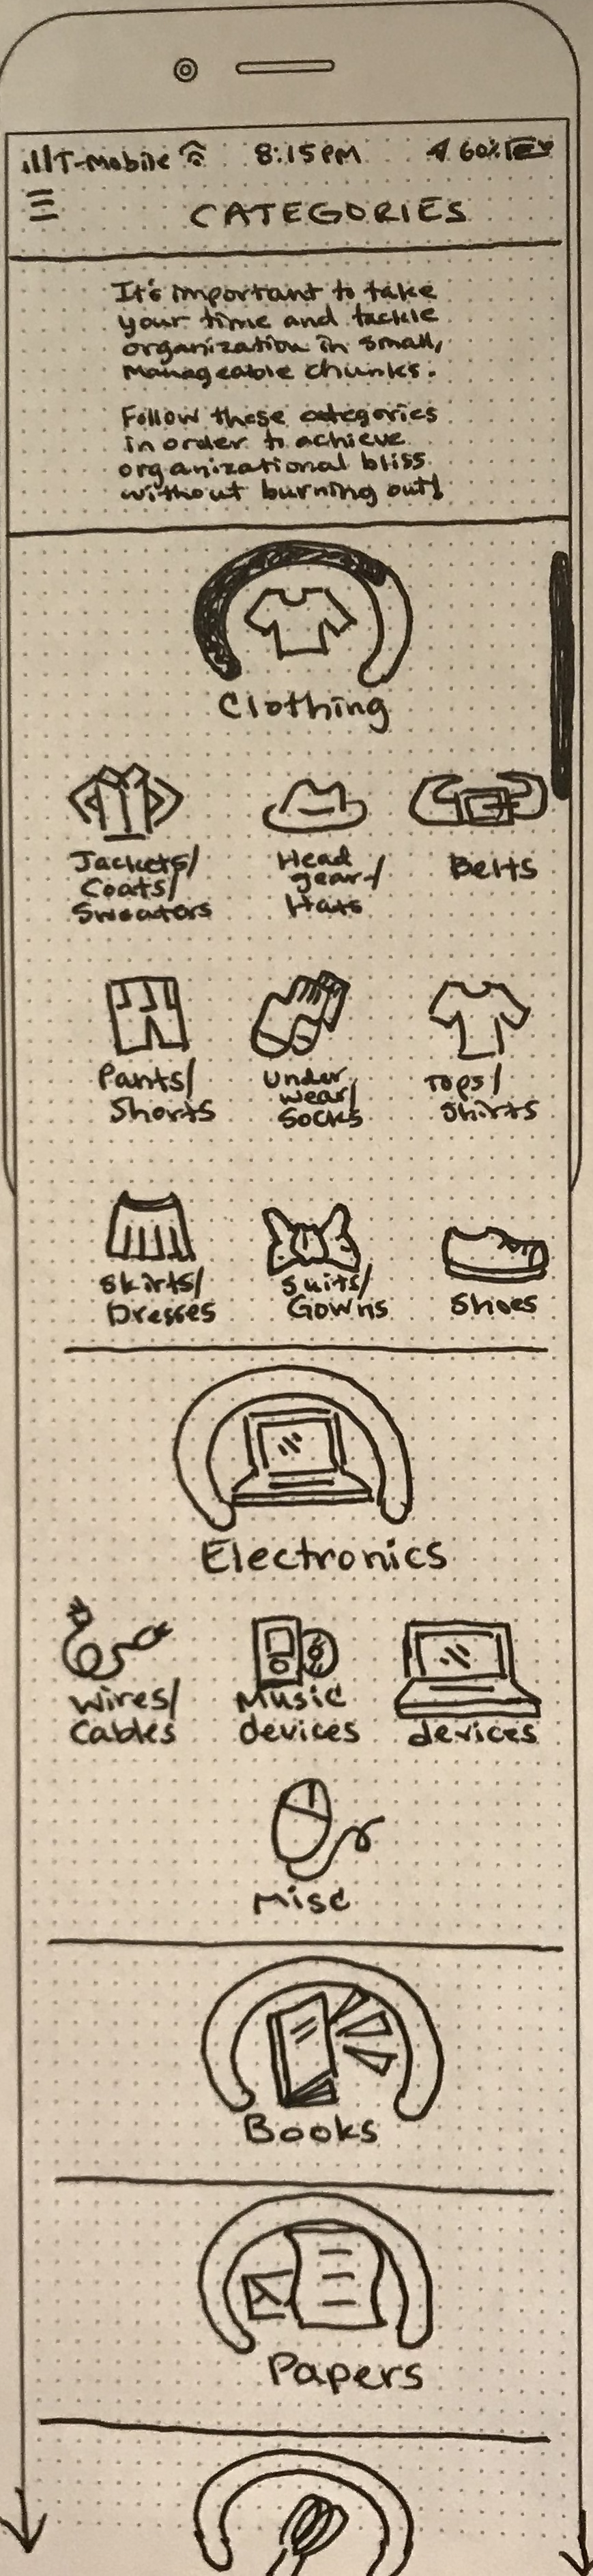 T-Mobile 8:15PM 60%
CATEGORIES
It's important to take
your time and tackle
organization in small,
manageable chunks.
Follow these categories
in order to achieve
organizational bliss
without burning out!
Clothing
Jackets/
Coats/
Sweaters
Head
gear/
Hats
Belts
Pants/
Shorts
Under
wear/
Socks
Tops/
Shirts
Skirts/
Dresses
Suits/
Gowns
Shoes
Electronics
Wires/
Cables
Music
devices
devices
Misc
Books
Papers